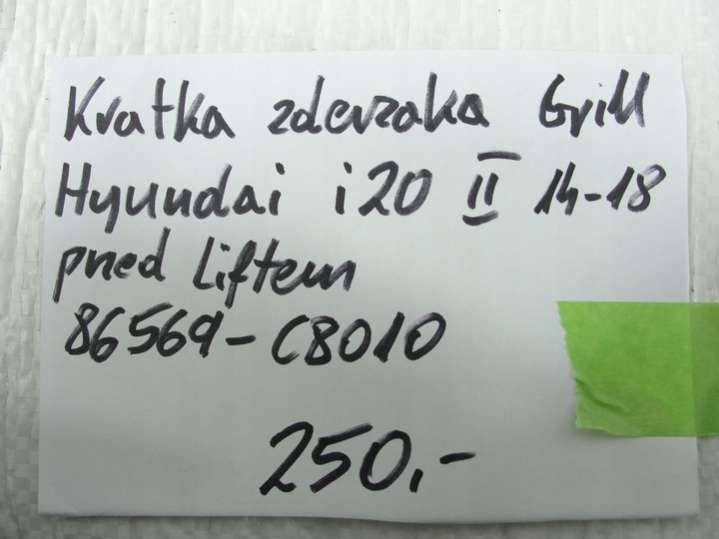 Kratka zderzaka Grill
Hyundai i20 II 14-18
pned Liftem
86569-C8010
250,-